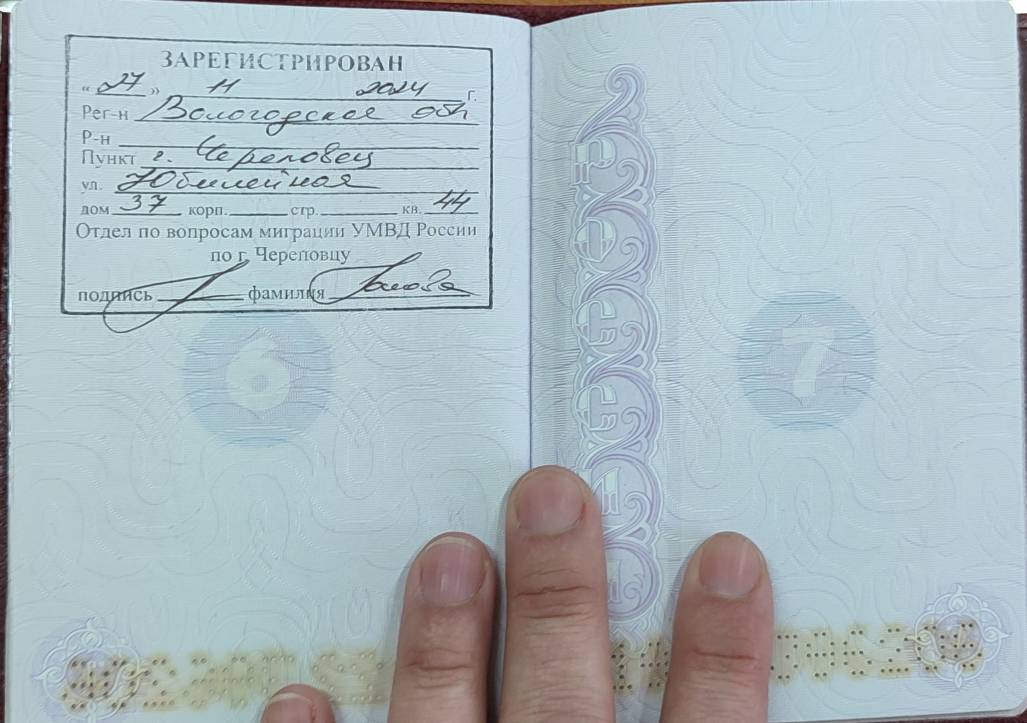 ЗАРЕГИСТРИРОВАН
« 27 » 11 2024 г.
Рег-н Вологодская обл
Р-н
Пункт г. Череповец
ул. Юбилейная
дом 37 корп. стр. кв. 44
Отдел по вопросам миграции УМВД России
по г. Череповцу
подпись фамилия
6
7